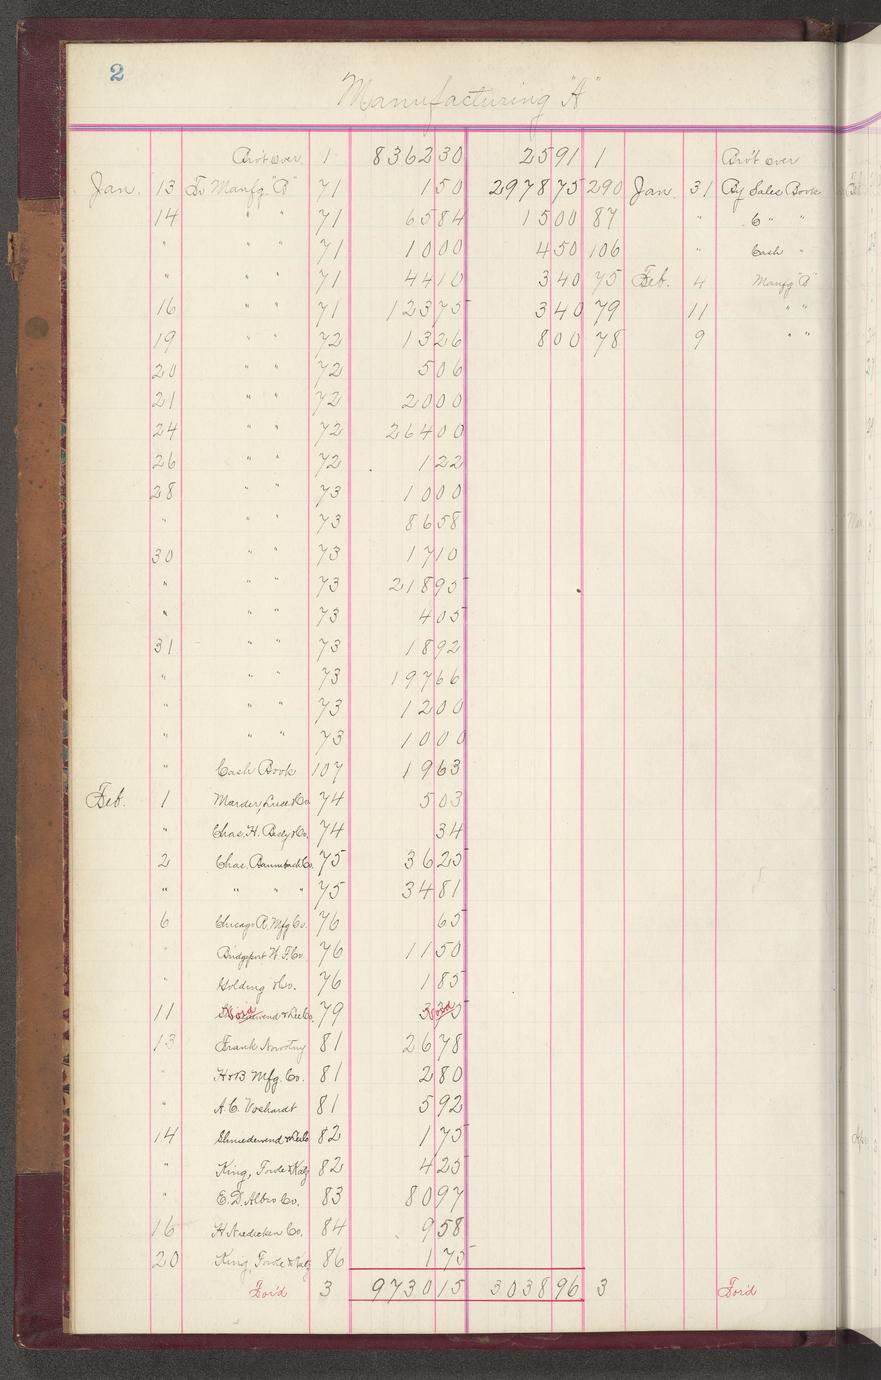 2
Manufacturing "A"
Bro't over 1 8362 30 25 91 1 Bro't over
Jan. 13 To Manfg. "B" 71 1 50 2978 75 290 Jan. 31 By Sales Book
14 " " 71 65 84 15 00 87 " C " "
" " " 71 10 00 4 50 106 " Cash "
" " " 71 44 10 3 40 75 Feb. 4 Manfg "B"
16 " " 71 123 75 3 40 79 11 " "
19 " " 72 13 26 8 00 78 9 " "
20 " " 72 5 06
21 " " 72 20 00
24 " " 72 264 00
26 " " 72 1 22
28 " " 73 10 00
" " " 73 86 58
30 " " 73 17 10
" " " 73 218 95
" " " 73 4 05
31 " " 73 18 92
" " " 73 197 66
" " " 73 12 00
" " " 73 10 00
" Cash Book 107 19 63
Feb. 1 Marder, Luse & Co. 74 5 03
" Chas. H. & Co. 74 34
2 Chas. Co. 75 36 25
" " " " 75 34 81
6 Chicago R. Mfg Co. 76 65
" Bridgeport W. F. Co. 76 11 50
" Golding & Co. 76 1 85
11 Void 79 Void
13 Frank Novotny 81 26 78
" H & B Mfg. Co. 81 2 80
" A. C. Voshardt 81 5 92
14 Shniedewend & Lee Co 82 1 75
" King, Fowle & Katz 82 4 25
" E. D. Albro Co. 83 80 97
16 H. Co. 84 9 58
20 King, Fowle & Katz 86 1 75
For'd 3 9730 15 3038 96 3 For'd